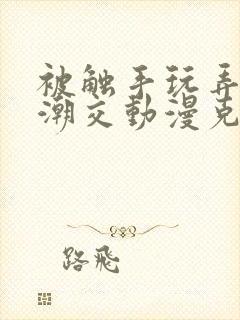 被触手玩弄
潮交動漫克
路飛